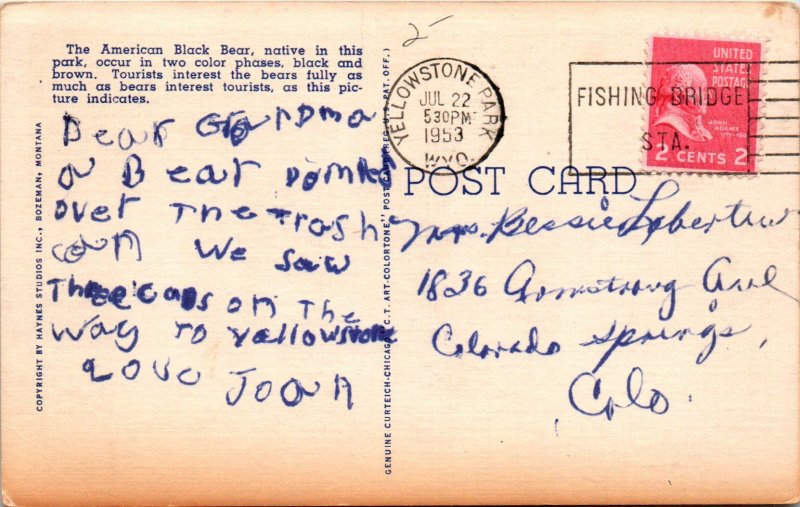 2-
The American Black Bear, native in this
park, occur in two color phases, black and
brown. Tourists interest the bears fully as
much as bears interest tourists, as this pic-
ture indicates.
Dear Grandma
a Bear domped
over The Trash
can We saw
Three cars on The
way To yellowstone
Love Joan
COPYRIGHT BY HAYNES STUDIOS INC., BOZEMAN, MONTANA
GENUINE CURTEICH-CHICAGO "C.T. ART-COLORTONE" POST CARD (REG. U.S. PAT. OFF.)
YELLOWSTONE PARK
JUL 22
530PM
1953
WYO.
FISHING BRIDGE
STA.
UNITED
STATES
POSTAGE
JOHN
ADAMS
2 CENTS 2
POST CARD
Mrs. Bessie
1836 Armstrong Ave
Colorado Springs,
Colo.